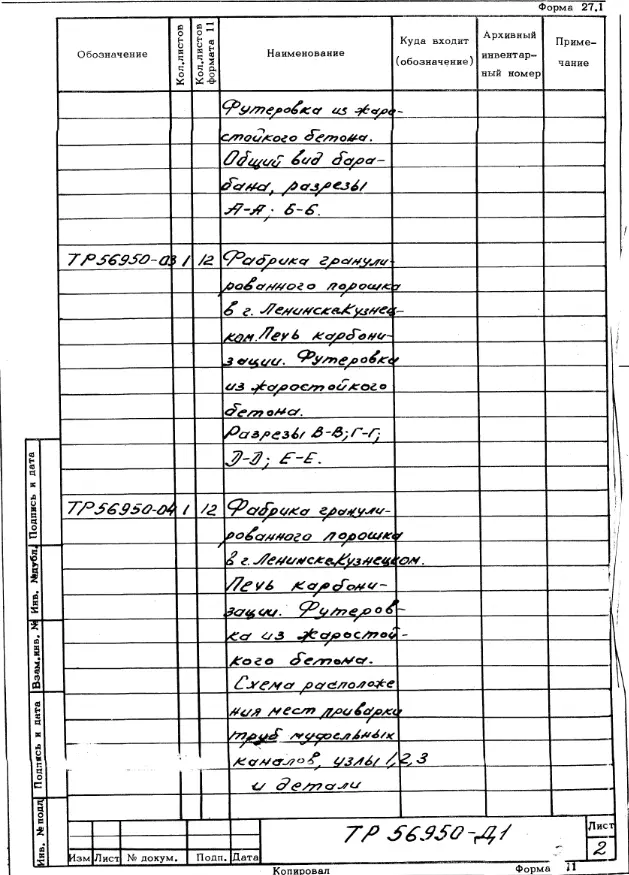 Форма 27.1
Обозначение
Кол.листов
Кол.листов формата 11
Наименование
Куда входит (обозначение)
Архивный инвентар- ный номер
Приме- чание
Футеровка из жаро-
стойкого бетона.
Общий вид бара-
бана, разрезы
А-А; Б-Б.
ТР56950-03 1 12 Фабрика гранули-
рованного порошка
в г. Ленинске-Кузнец-
ком. Печь карбони-
зации. Футеровка
из жаростойкого
бетона.
Разрезы В-В; Г-Г;
Д-Д; Е-Е.
ТР56950-04 1 12 Фабрика гранули-
рованного порошка
в г. Ленинске-Кузнецком.
Печь карбони-
зации. Футеров-
ка из жаростой-
кого бетона.
Схема расположе
ния мест приварки
труб муфельных
каналов, узлы 1,2,3
и детали
Подпись и дата
Инв. №дубл.
Взам.инв. №
Подпись и дата
Инв. №подл
Изм Лист № докум. Подп. Дата
ТР 56950-Д1
Лист
2
Копировал
Форма 11